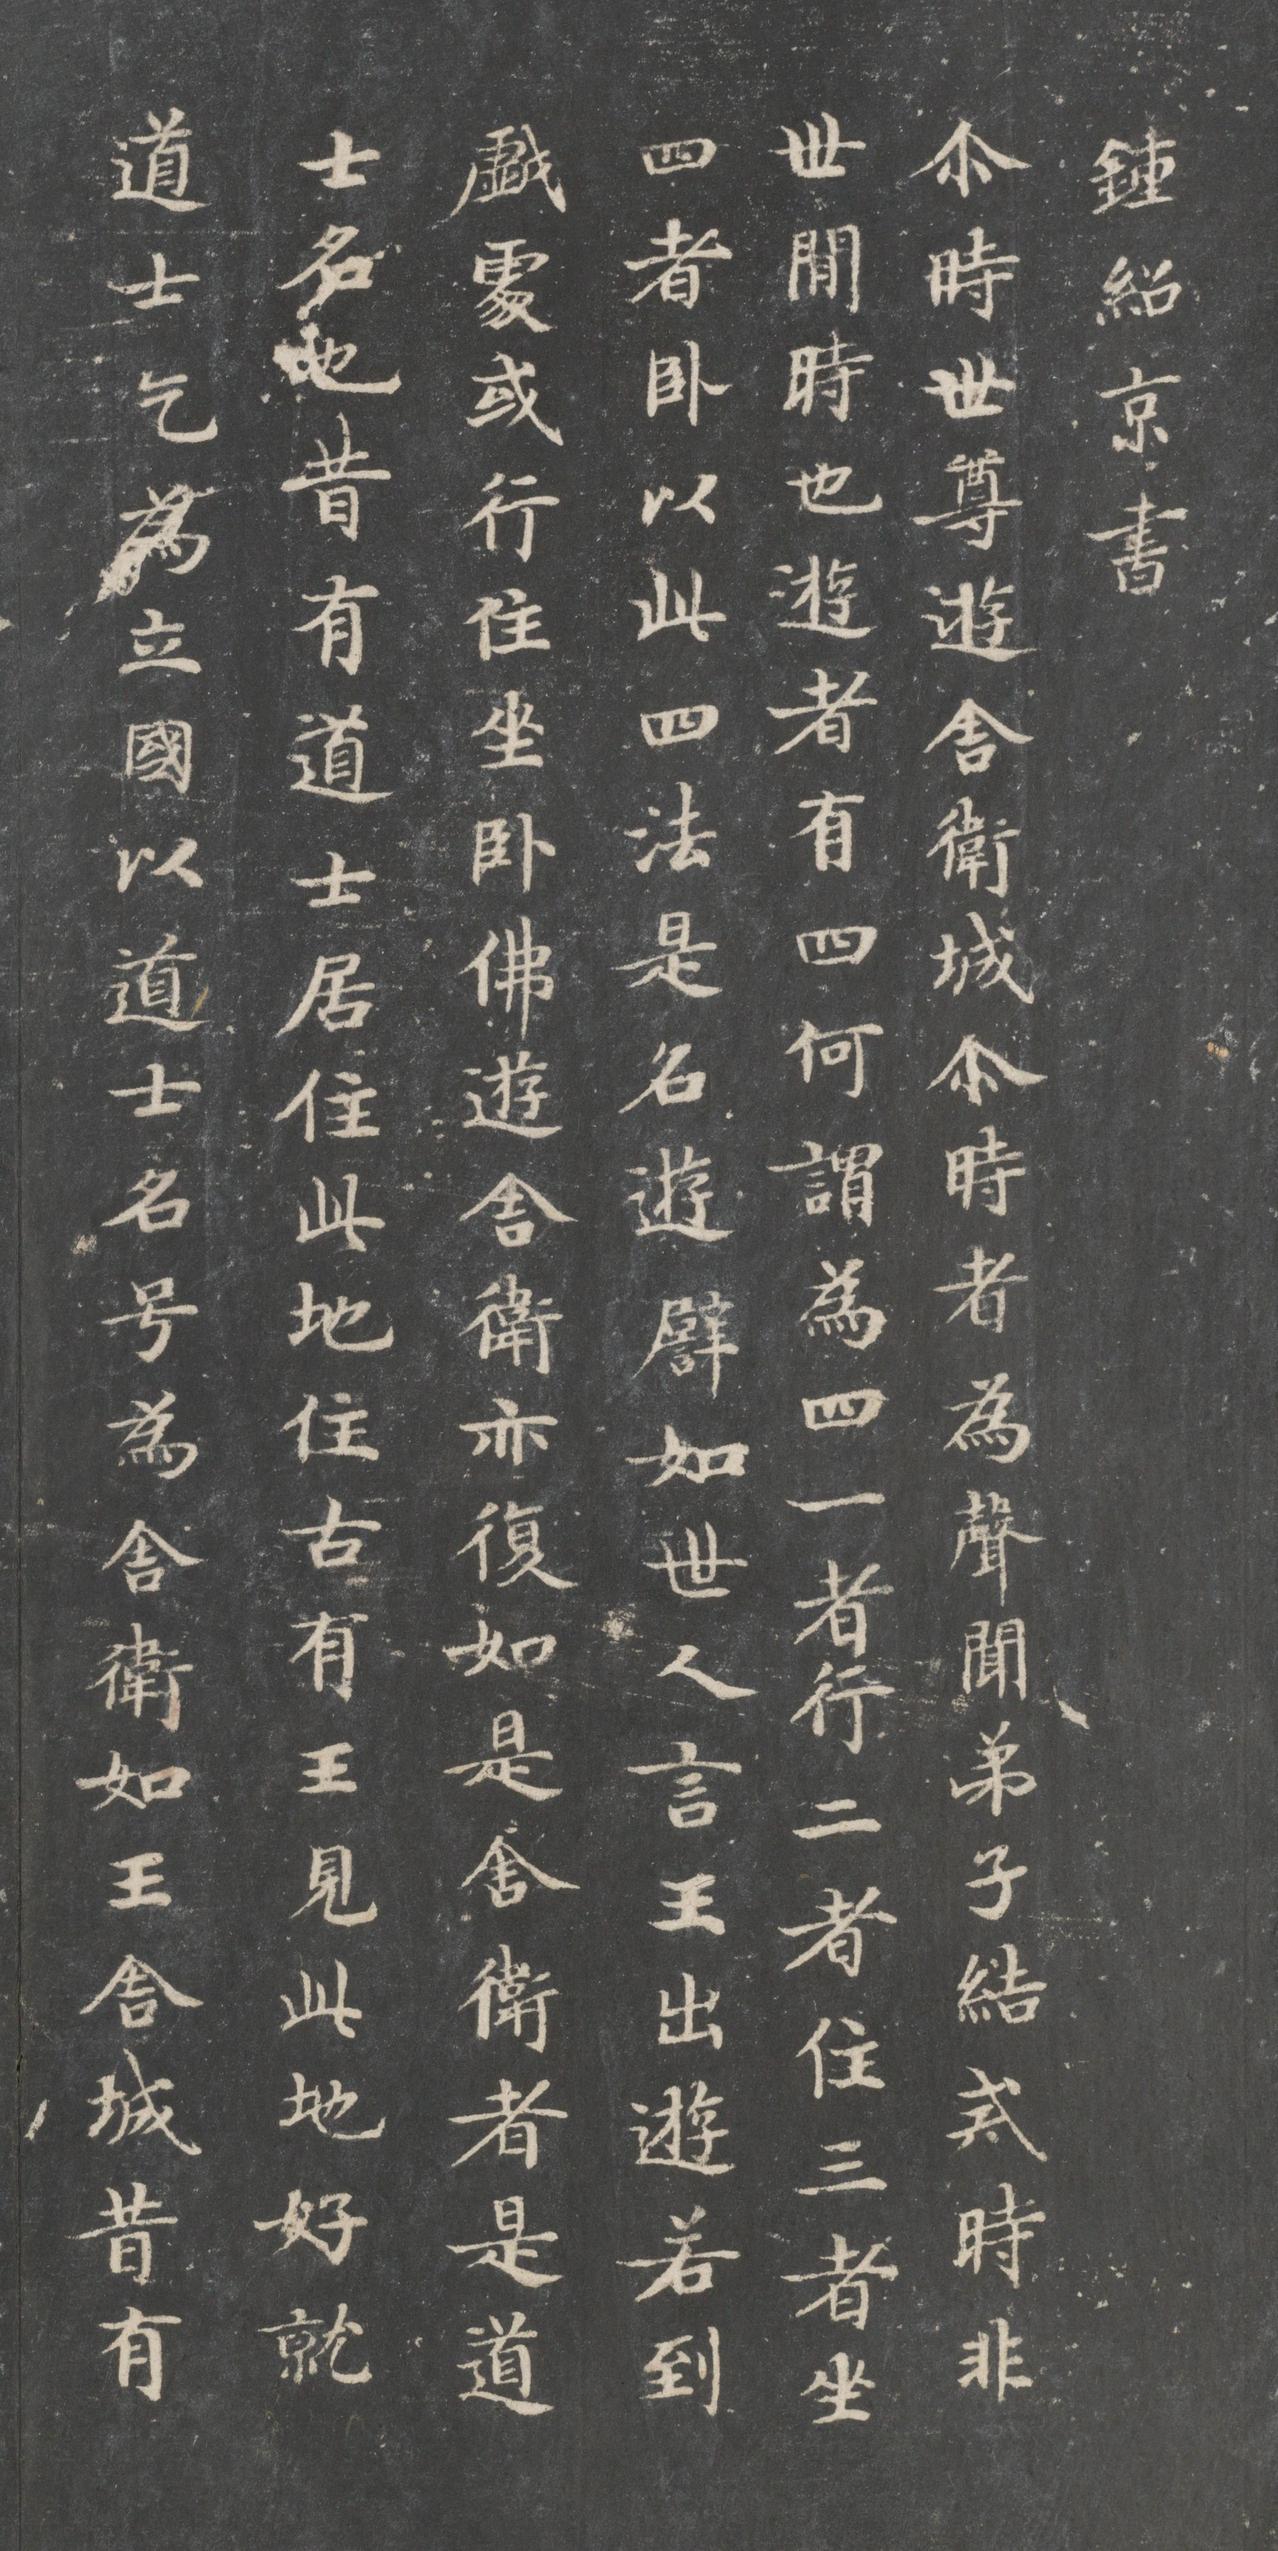 鍾紹京書
尒時世尊遊舍衛城尒時者為聲聞弟子結戒時非
世間時也遊者有四何謂為四一者行二者住三者坐
四者卧以此四法是名遊譬如世人言王出遊若到
戲處或行住坐卧佛遊舍衛亦復如是舍衛者是道
士名也昔有道士居住此地住古有王見此地好就
道士乞為立國以道士名号為舍衛如王舍城昔有